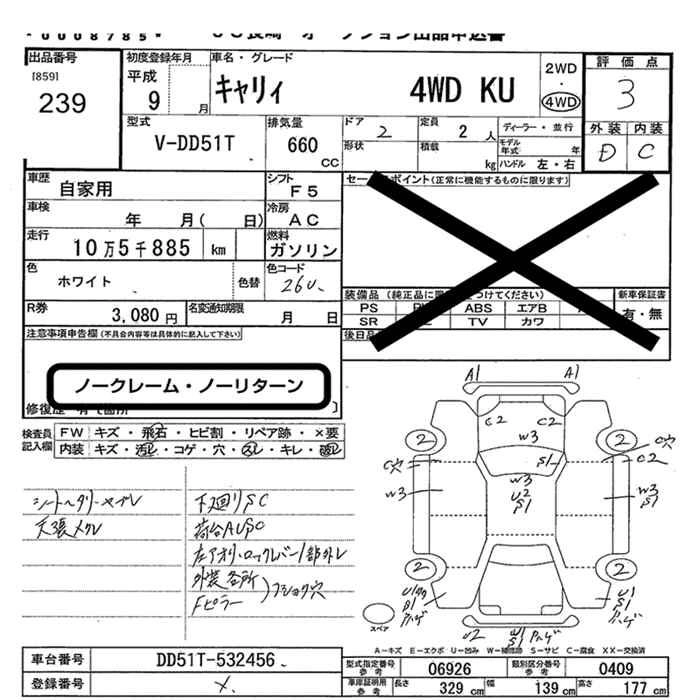 *0008785*
出品番号
[859]
239
初度登録年月
平成
9 月
車名・グレード
キャリイ 4WD KU
2WD
・
4WD
評価点
3
外装 内装
D C
型式
V-DD51T
排気量
660 CC
ドア 2
定員 2 人
形状
積載 kg
ディーラー・並行
モデル年式 年
ハンドル 左・右
車歴
自家用
シフト
F5
車検
年 月( 日)
冷房
AC
走行
10万5千885 km
燃料
ガソリン
色
ホワイト
色替
色コード
26U
R券
3,080 円
名変通知期限
月 日
セールスポイント(正常に機能するものに限ります)
装備品
PS ABS エアB
SR TV カワ
新車保証書
有・無
注意事項申告欄(不具合内容等は具体的に記入して下さい)
ノークレーム・ノーリターン
修復歴
検査員記入欄
FW キズ・飛石・ヒビ割・リペア跡・×要
内装 キズ・汚レ・コゲ・穴・スレ・キレ・破レ
天張メクレ
下廻りSC
荷台AUSC
外装各所
Fピラー
A1 A1
C2 C2
W3
S1
W3
U2
S1
2 2
C穴 C穴
C2
W3 W3
S1
2 2
U1
S1
ハゲ
U2
S1 ハゲ
U1
S1
ハゲ
スペア
A−キズ E−エクボ U−凹み W−補修跡 S−サビ C−腐食 XX−交換済
車台番号 DD51T-532456
登録番号
型式指定番号 参考 06926
類別区分番号 参考 0409
車庫証明用 参考 長さ 329 cm 幅 139 cm 高さ 177 cm